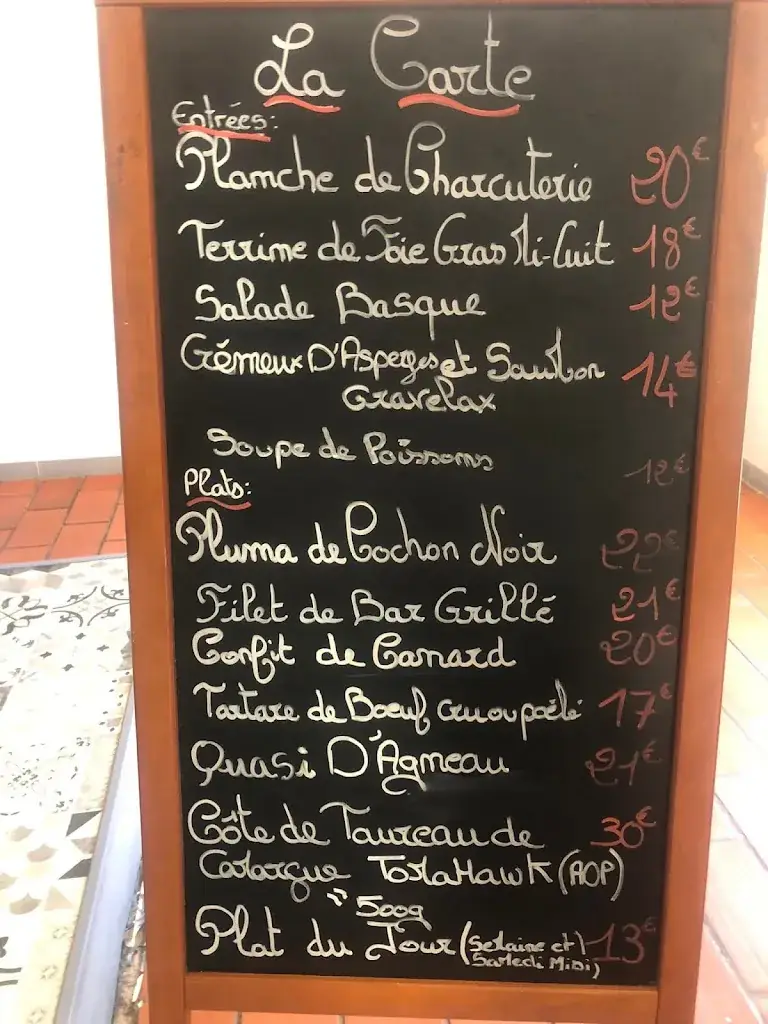 La Carte
Entrées:
Planche de Charcuterie 20€
Terrine de Foie Gras Mi-Cuit 18€
Salade Basque 12€
Crémeux D'Asperges et Saumon 14€
Gravelax
Soupe de Poissons 12€
Plats:
Pluma de Cochon Noir 22€
Filet de Bar Grillé 21€
Confit de Canard 20€
Tartare de Boeuf cru ou poêlé 17€
Quasi D'Agneau 21€
Côte de Taureau de 30€
Camargue Tomahawk (AOP)
500g
Plat du Jour (Semaine et 13€
Samedi Midi)